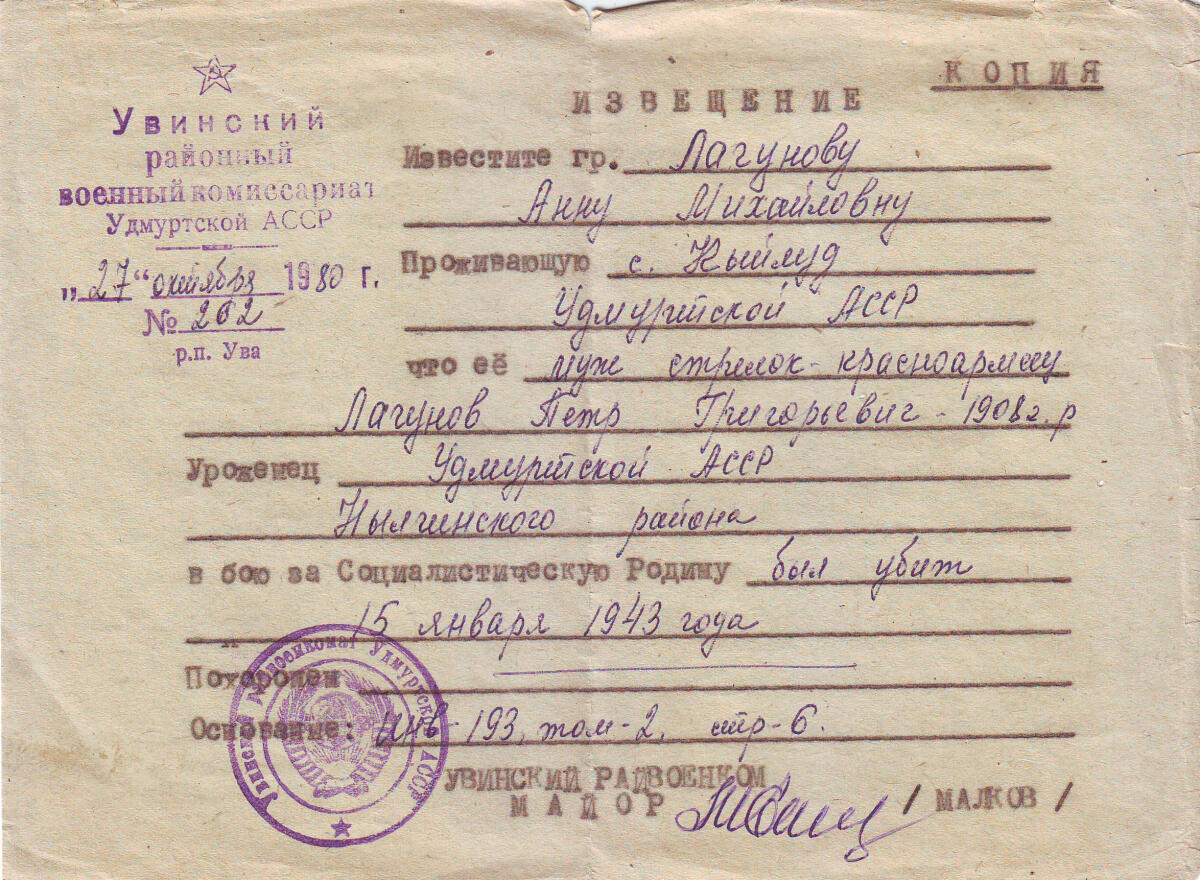 КОПИЯ
ИЗВЕЩЕНИЕ
Увинский
районный
военный комиссариат
Удмуртской АССР
„27“ октября 1980 г.
№ 202
р.п. Ува
Известите гр. Лагунову
Анну Михайловну
Проживающую с. Кыйлуд
Удмуртской АССР
что её муж стрелок-красноармеец
Лагунов Петр Григорьевич - 1908 г.р
Уроженец Удмуртской АССР
Нылгинского района
в бою за Социалистическую Родину был убит
15 января 1943 года
и
Похоронен
Основание: инв-193, том-2, стр-6.
УВИНСКИЙ РАЙВОЕНКОМ
МАЙОР / МАЛКОВ /
Увинский Райвоенкомат Удмуртской АССР